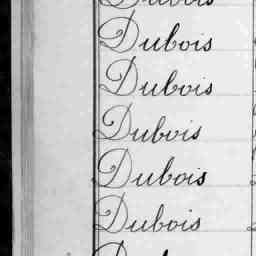 Dubois
Dubois
Dubois
Dubois
Dubois
Dubois